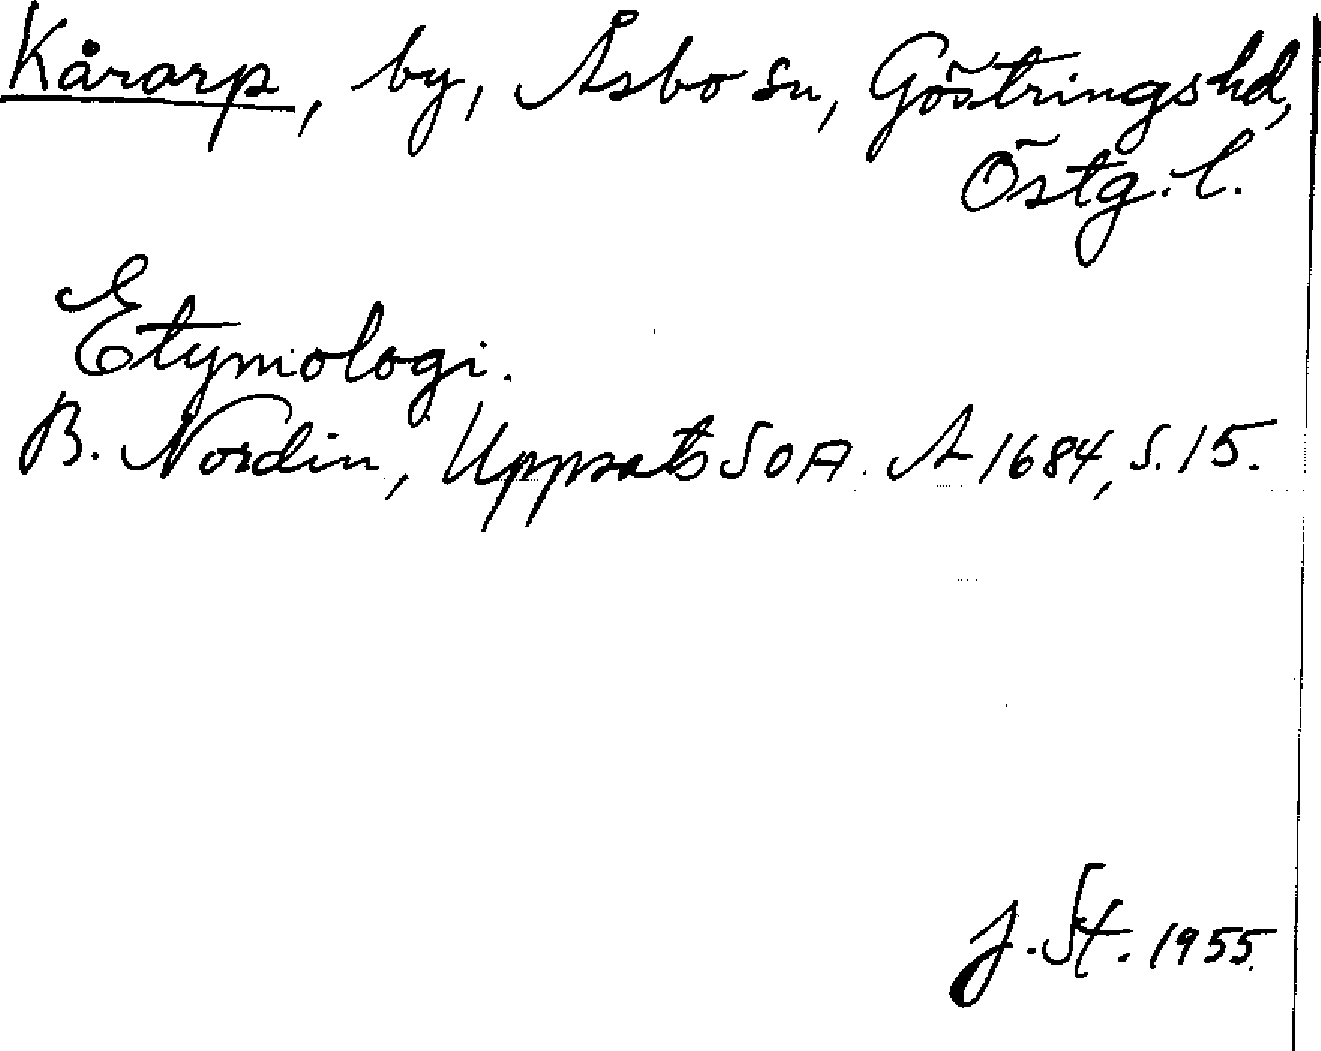 Kårarp, by, Åsbo sn, Göstringshd,
Östg.l.
Etymologi.
B. Nordin, Uppsats SOA. A 1684, s. 15.
J. St. 1955.